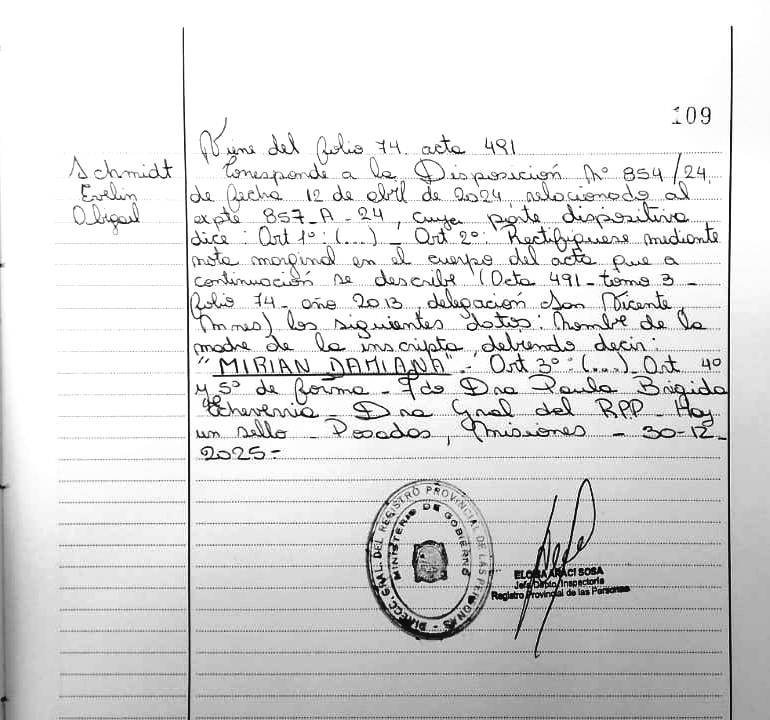 109
Viene del folio 74. acta 491
Schmidt
Evelin
Abigail
Corresponde a la Disposición Nº 854/24
de fecha 12 de abril de 2024, relacionado al
expte 857-A-24, cuya parte dispositiva
dice: Art 1º: (...) - Art 2º: Rectifíquese mediante
nota marginal en el cuerpo del acta que a
continuación se describe (Acta 491 - tomo 3 -
folio 74 - año 2013, delegación San Vicente,
Mnes) los siguientes datos: Nombre de la
madre de la inscripta, debiendo decir:
"MIRIAN DAMIANA" - Art 3º: (...) Art 4º
y 5º de forma - Fdo Dra Paula Brigida
Echeverria - Dra Gral del RPP - Hay
un sello - Posadas, Misiones - 30-12-
2025-
DIRECC. GRAL. DEL REGISTRO PROVINCIAL DE LAS PERSONAS
MINISTERIO DE GOBIERNO
ELOISA ARACI SOSA
Jefa Dpto. Inspectoría
Registro Provincial de las Personas